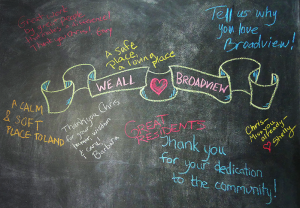 Tell us why
you love
Broadview!
A safe
place,
a loving place
WE ALL
BROADVIEW
A CALM
& SOFT
PLACE TO LAND
Thank you Chris
for your
& care!
Barbara
GREAT
RESIDENTS
Thank you
for your dedication
to the community!
Chris-
Miss you
already-
Shelly